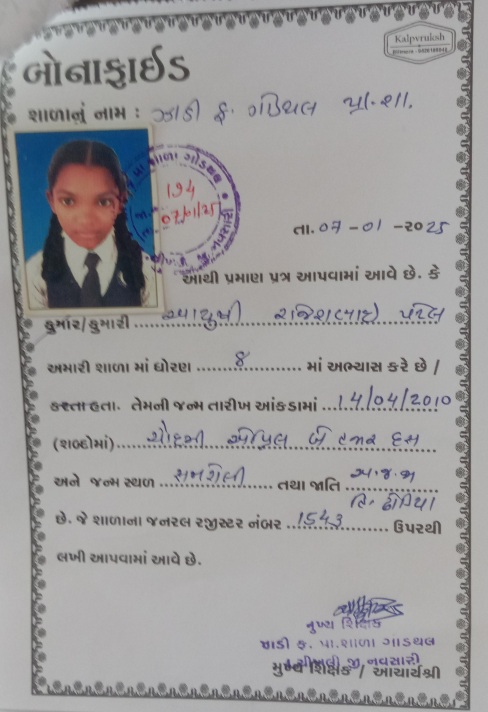 Kalpvruksh
બોનાફાઈડ
શાળાનું નામ : ઝાડી ફ. ગોડથલ પ્રા.શા.
194
07/01/25
તા. 07 - 01 - ૨૦25
આથી પ્રમાણ પત્ર આપવામાં આવે છે. કે
કુમાર/કુમારી આયુષી રાજેશભાઈ પટેલ
અમારી શાળા માં ધોરણ 8 માં અભ્યાસ કરે છે /
કરતા હતા. તેમની જન્મ તારીખ આંકડામાં 14/04/2010
(શબ્દોમાં) ચૌદમી એપ્રિલ બે હજાર દસ
અને જન્મ સ્થળ તથા જાતિ અ.જ.જા
હિ. ઢોડિયા
છે. જે શાળાના જનરલ રજીસ્ટર નંબર 1543 ઉપરથી
લખી આપવામાં આવે છે.
મુખ્ય શિક્ષક
ઝાડી ફ. પ્રા.શાળા ગોડથલ
તા.ચીખલી જી.નવસારી
મુખ્ય શિક્ષક / આચાર્યશ્રી